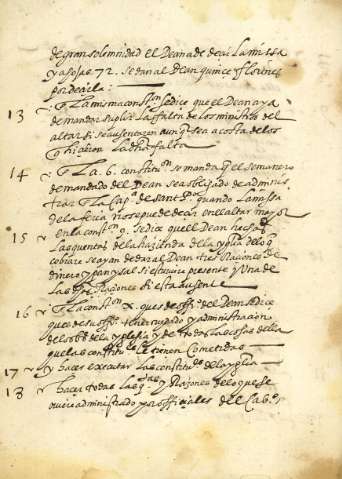 de gran solemnidad el Dean ade decir La missa
y a fojas 72. se dan al Dean quince florines
por decilla:
13 La misma conston se dice que el Dean aya
de mandar suplir La falta de los ministros del
altar si se ausentaron aunq sea a costa de los
q hicieron La dha falta
14 La 6. constitun se manda q el semanero
de mandado del Dean sea obligado de adminis
trar La Capa de sant po quando La missa
de la feria no se puede decir en el altar mayor
15 en la conston 9. se dice que ell Dean
Las quentas de la hacienda de la yglia de lo q
cobrare se ayan de dar al Dean tres Raçones de
dinero y pan y sal si estuviere presente y Una de
Las tres Raçones si esta ausente
16 La conston x. ques de offo del Dean se dice
ques de su offo y administracion
de los de la yglesia y de todas Las cosas della
que Las constituos Le tienen Cometidas
17 y hacer executar Las constituos de la yglia
18 hacer todas Las y Raçones de lo que se
administrado por officiales del Cabo